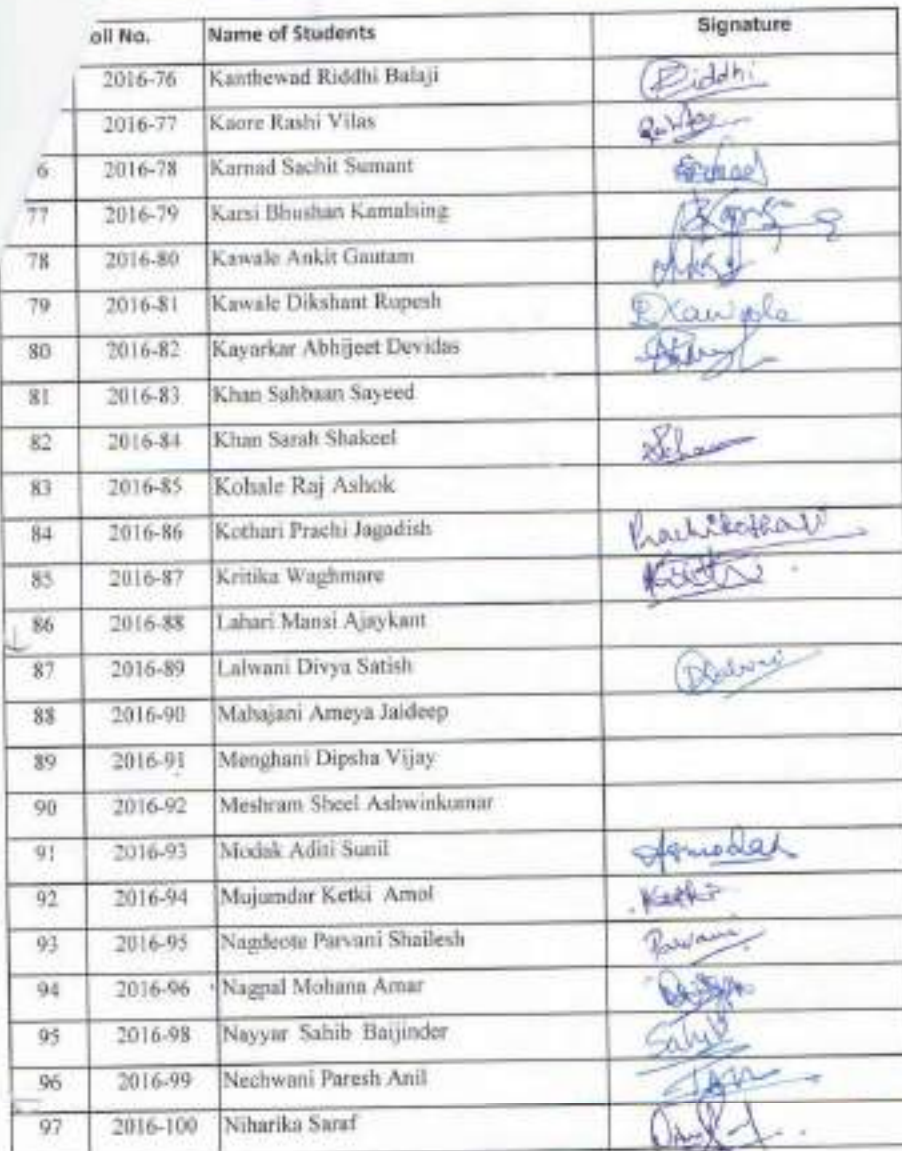 oll No. Name of Students Signature
2016-76 Kanthewad Riddhi Balaji Riddhi
2016-77 Kaore Rashi Vilas
6 2016-78 Karnad Sachit Sumant
77 2016-79 Karsi Bhushan Kamalsing
78 2016-80 Kawale Ankit Gautam Ankit
79 2016-81 Kawale Dikshant Rupesh DKawale
80 2016-82 Kayarkar Abhijeet Devidas
81 2016-83 Khan Sahbaan Sayeed
82 2016-84 Khan Sarah Shakeel
83 2016-85 Kohale Raj Ashok
84 2016-86 Kothari Prachi Jagadish Prachikothari
85 2016-87 Kritika Waghmare
86 2016-88 Lahari Mansi Ajaykant
87 2016-89 Lalwani Divya Satish
88 2016-90 Mahajani Ameya Jaideep
89 2016-91 Menghani Dipsha Vijay
90 2016-92 Meshram Sheel Ashwinkumar
91 2016-93 Modak Aditi Sunil Asmodak
92 2016-94 Mujumdar Ketki Amol Ketki
93 2016-95 Nagdeote Parvani Shailesh Parvani
94 2016-96 Nagpal Mohana Amar
95 2016-98 Nayyar Sahib Baijinder Sahib
96 2016-99 Nechwani Paresh Anil
97 2016-100 Niharika Saraf